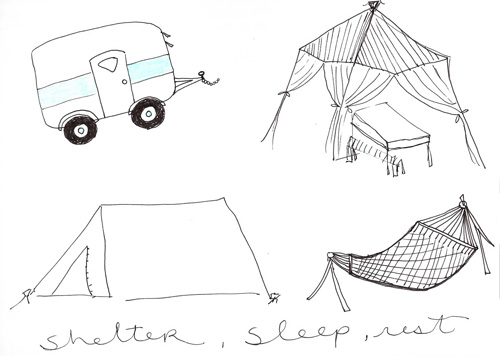 shelter, sleep, rest